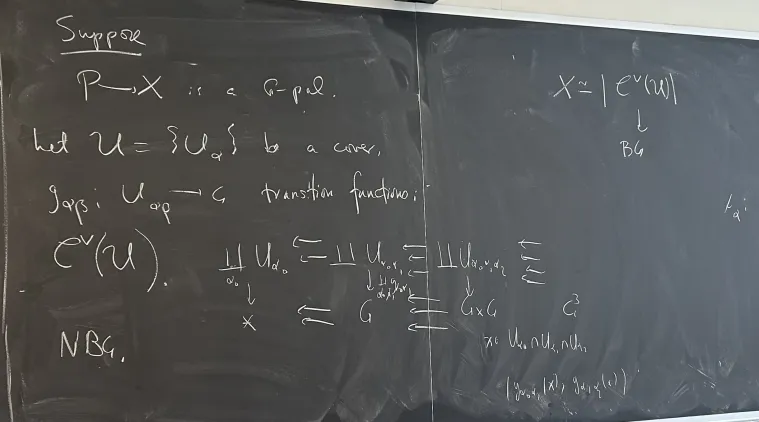 Suppose
P → X is a G-pal.
Let U = {U_α} be a cover,
g_αβ : U_αβ → G transition functions:
Č(U). ∐_α₀ U_α₀ ⇇ ∐ U_α₀α₁ ⇇ ∐ U_α₀α₁α₂ ⇇
↓ ↓ ∐ g_α₀α₁ ↓
NBG. * ⇇ G ⇇ G×G G³
x ∈ U_α₀ ∩ U_α₁ ∩ U_α₂
(g_α₀α₁(x), g_α₁α₂(x))
X ≃ | Č(U) |
↓
BG